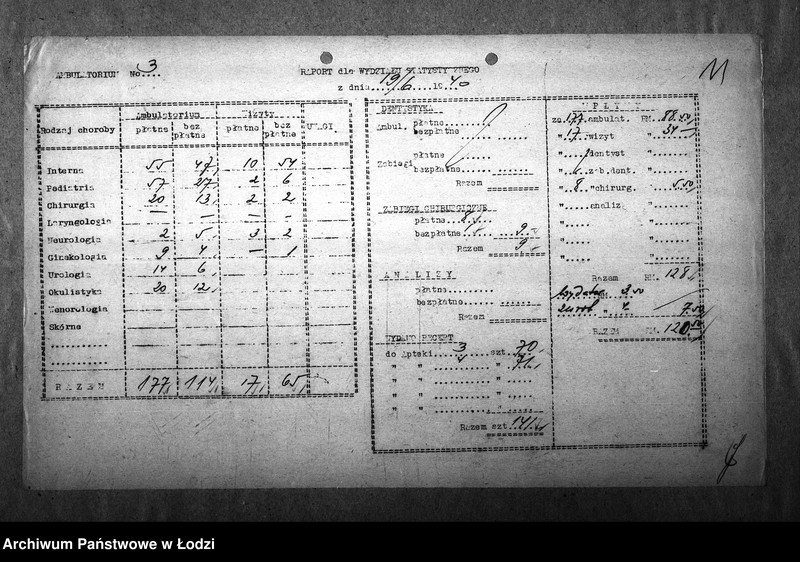 AMBULATORIUM No 3....
RAPORT dla WYDZIAŁU STATYSTYCZNEGO
z dnia 19/6 1940
11
Ambulatorium Wizyty
Rodzaj choroby płatne bez płatne płatne bez płatne UWAGI
Interna 55 47 10 54
Pediatria 57 27 2 6
Chirurgia 20 13 2 2
Laryngologia — — — —
Neurologia 2 5 3 2
Ginekologia 9 4 — 1
Urologia 14 6
Okulistyka 20 12
Wenerologia
Skórne
..........
..........
R A Z E M 177 114 17 65
DENTYSTYKA
Ambul. płatne ........
bezpłatne ........
Zabiegi płatne ........
bezpłatne ........
Razem ........
ZABIEGI CHIRURGICZNE
płatne 8
bezpłatne 1 9
Razem 9
A N A L I Z Y
płatne........
bezpłatne........ ......
Razem ......
WYDANO RECEPT
do Apteki 3 szt. 70
" " 4 " 71
" " ...... " .....
" " ...... " .....
" " ...... " .....
Razem szt 141
W P Ł Y W Y
za 177 ambulat. RM. 88.50
" 17 wizyt " 34.—
" dentyst "
" zab.dent. "
" 8 "chirurg. " 5.50
"..... analiz "
"..... "
"..... "
Razem RM. 128
wydatki 3.50
zwrot " 4. 7.50
RAZEM RM. 120.50
Archiwum Państwowe w Łodzi